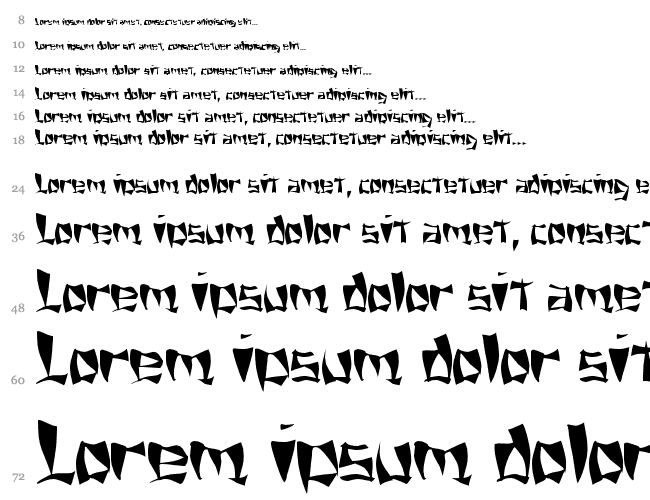 8 Lorem ipsum dolor sit amet, consectetuer adipiscing elit...
10 Lorem ipsum dolor sit amet, consectetuer adipiscing elit...
12 Lorem ipsum dolor sit amet, consectetuer adipiscing elit...
14 Lorem ipsum dolor sit amet, consectetuer adipiscing elit...
16 Lorem ipsum dolor sit amet, consectetuer adipiscing elit...
18 Lorem ipsum dolor sit amet, consectetuer adipiscing elit...
24 Lorem ipsum dolor sit amet, consectetuer adipiscing e
36 Lorem ipsum dolor sit amet, consect
48 Lorem ipsum dolor sit amet
60 Lorem ipsum dolor sit
72 Lorem ipsum dolor